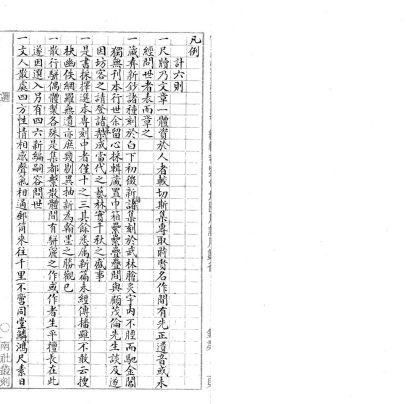 凡例
計六則
一尺牘乃文章一體資於人者較切斯集專取時賢名作間有先正遺音或未
經問世者表而章之
一藏弆新鈔諸種刻於白下初徵新語集刻於武林膾炙宇內不脛而馳金閶
獨無刊本行世余留心採輯歲置巾箱纍纍疊疊間與顧茂倫先生談及遂
因坊客之請登諸梨棗成當代之藝林實千秋之盛事
一是書採擇選本專刻中者僅十之三其餘悉屬新篇未經傳播雖不敢云搜
抉幽佚網羅無遺亦庶幾剔異抽新為翰墨之勝觀已
一散行駢偶體製各殊是集都繫散體間有駢麗之作或作者生平擅長在此
遂因選入另有四六新編嗣容問世
一文人散處四方性情相感聲氣相通郵筒來往千里不啻同堂鱗鴻尺素日
選
南社叢刻